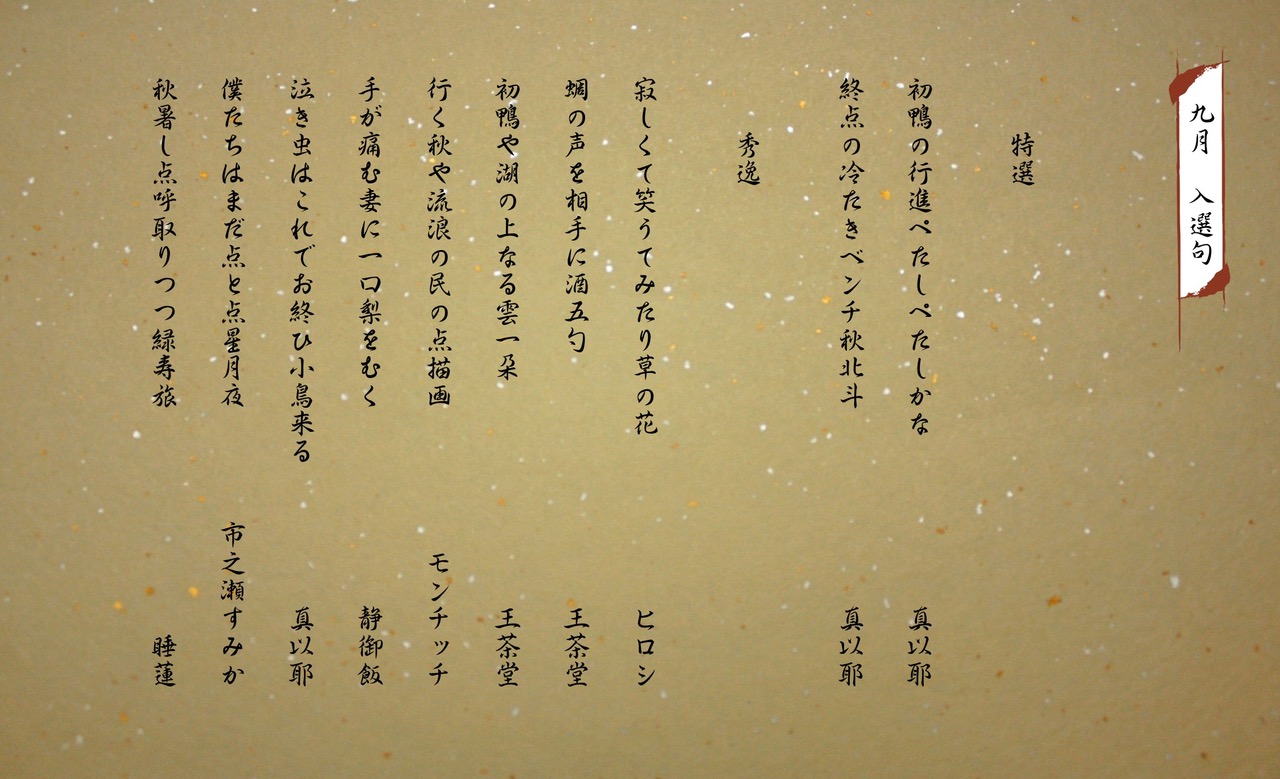 九月　入選句
特選
初鴨の行進ぺたしぺたしかな　真以耶
終点の冷たきベンチ秋北斗　真以耶
秀逸
寂しくて笑うてみたり草の花　ヒロシ
蜩の声を相手に酒五勺　王茶堂
初鴨や湖の上なる雲一朶　王茶堂
行く秋や流浪の民の点描画　モンチッチ
手が痛む妻に一口梨をむく　静御飯
泣き虫はこれでお終ひ小鳥来る　真以耶
僕たちはまだ点と点星月夜　市之瀬すみか
秋暑し点呼取りつつ緑寿旅　睡蓮